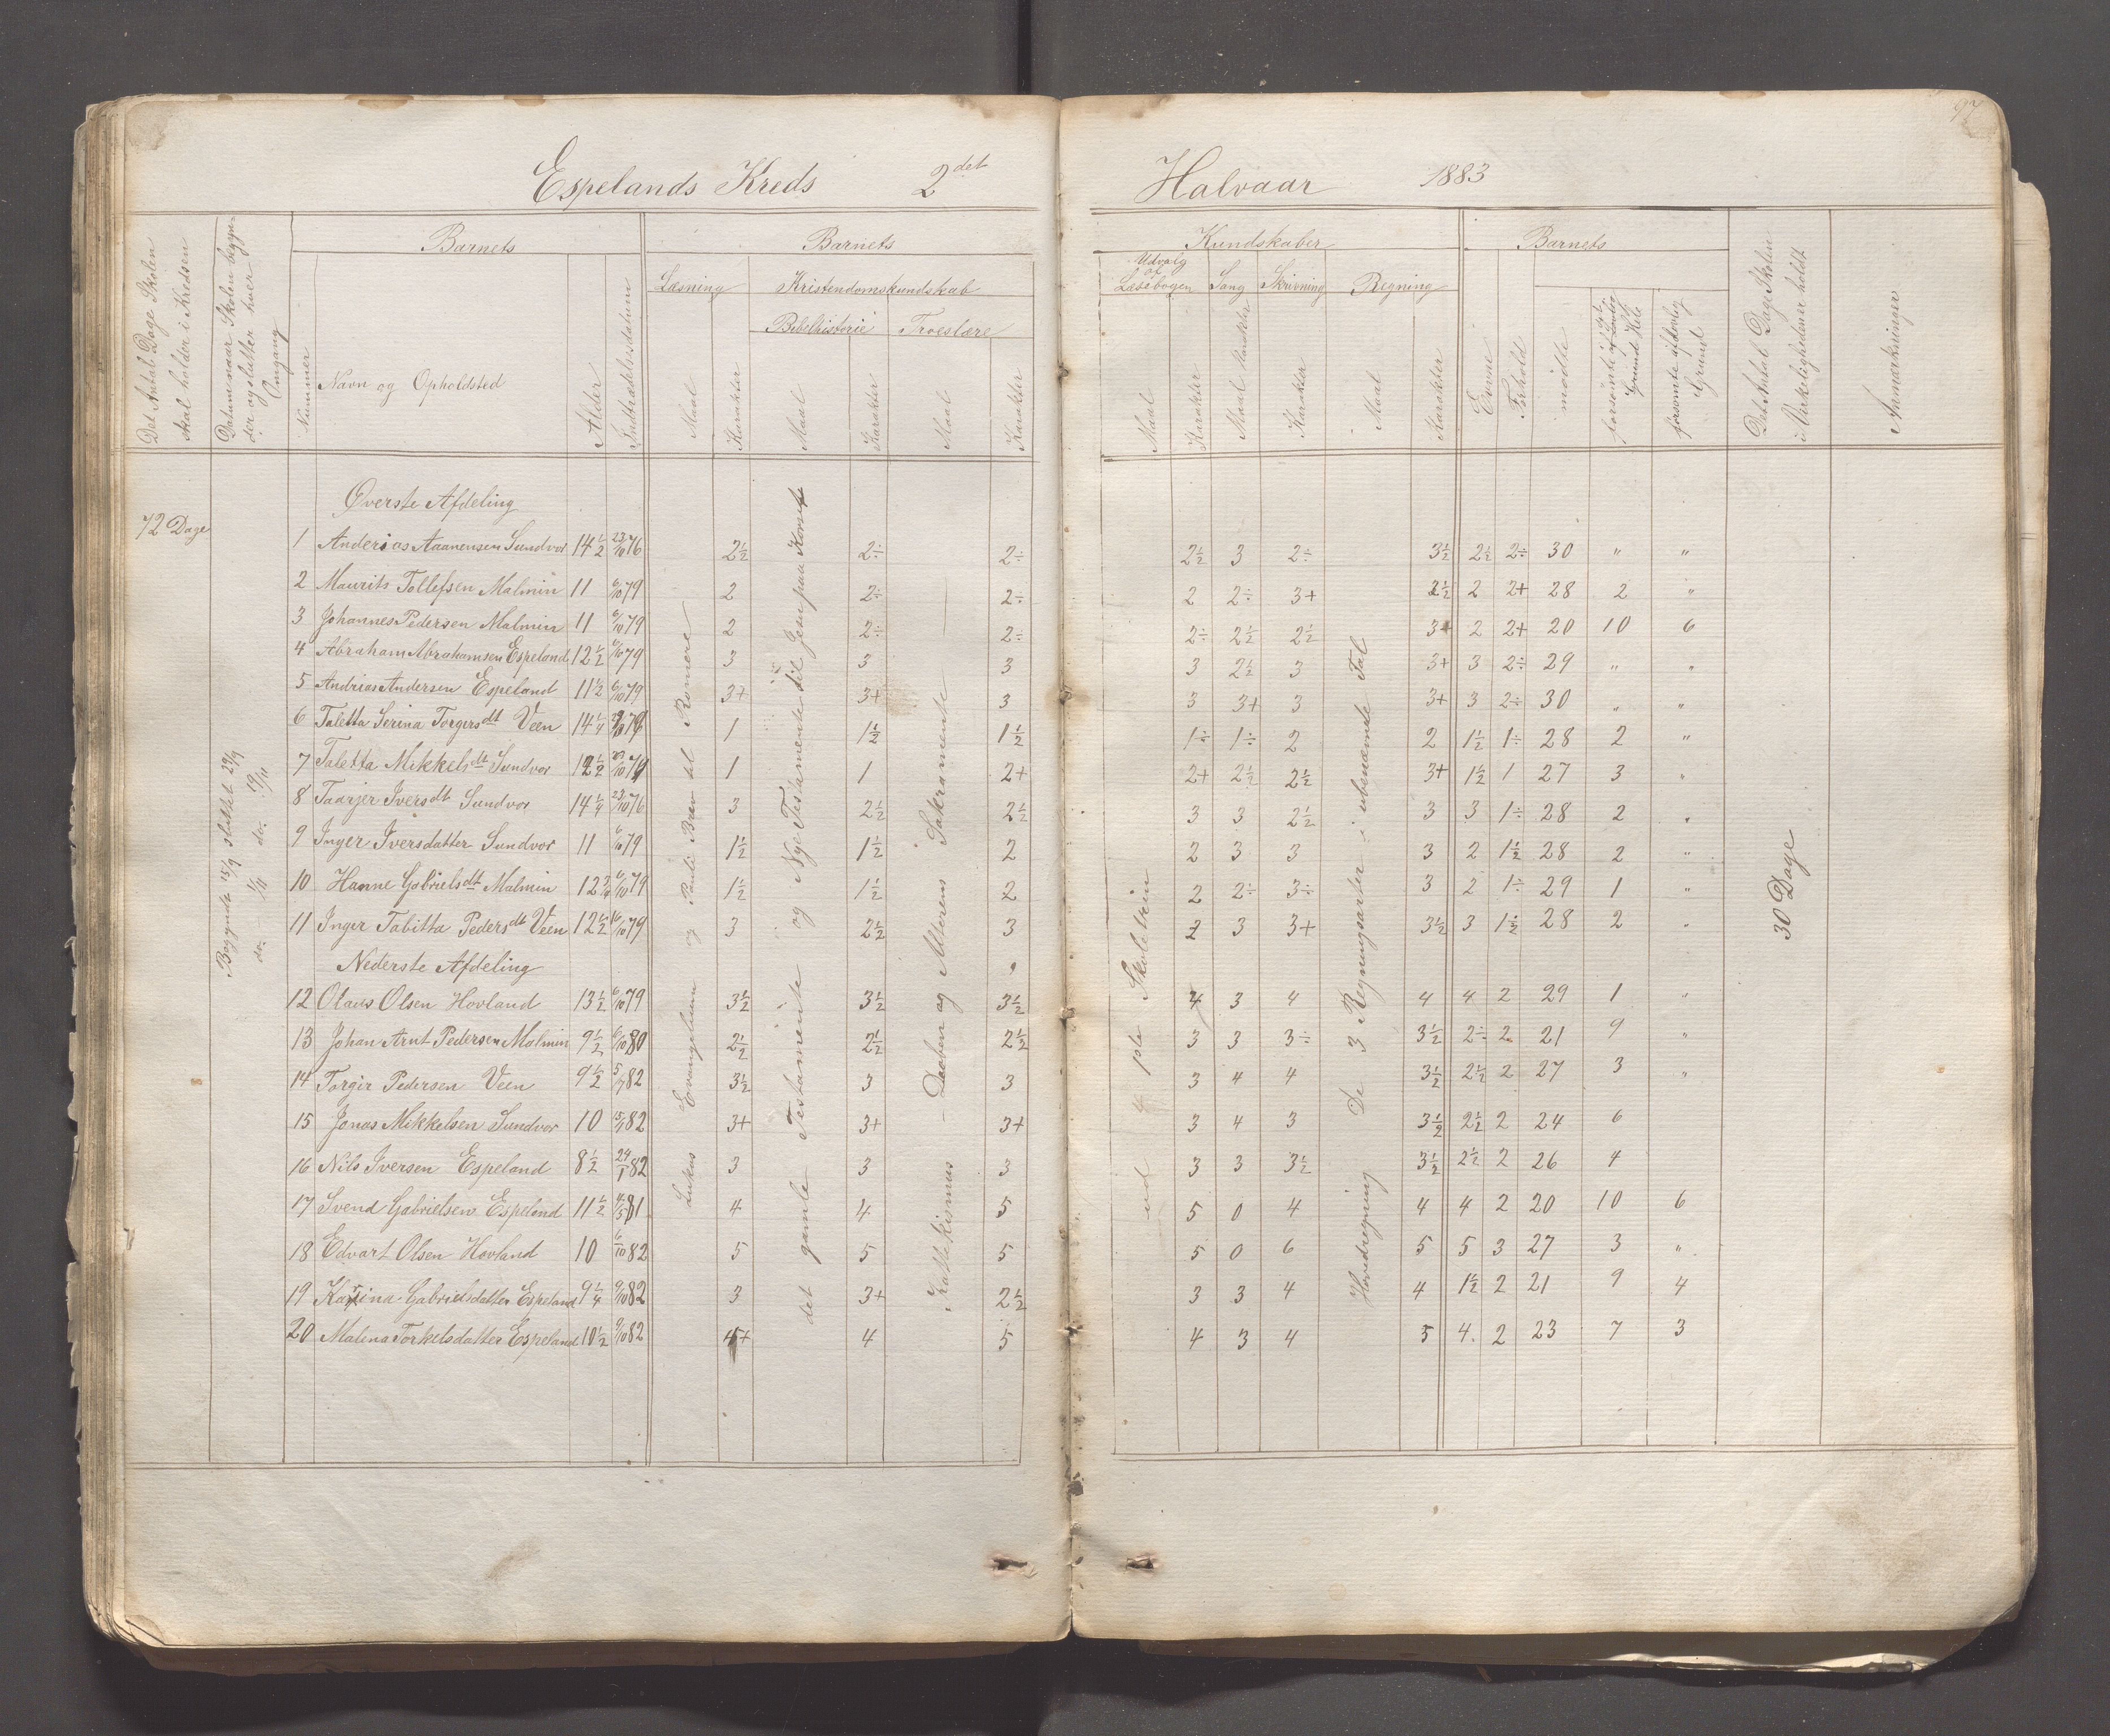 97
Espelands Kreds 2det Halvaar 1883
Det Antal Dage Skolen skal holdes i Kredsen
Datum naar Skolen begynder og slutter hver Omgang
Barnets
Nummer
Navn og Opholdsted
Alder
Indtrædelsesdatum
Barnets
Læsning
Maal
Karakter
Kristendomskundskab
Bibelhistorie
Maal
Karakter
Troeslære
Maal
Karakter
Kundskaber
Udvalg af Læsebogen
Maal
Karakter
Sang
Maal Karakter
Skrivning
Karakter
Regning
Maal
Karakter
Barnets
Evne
Forhold
mödte
forsömte af Grund
forsömte af lovlig Grund
Det Antal Dage Skolen i Virkeligheden er holdt
Anmærkninger
72 Dage
Begyndt 15/9 sluttet 29/9
do. 1/11 do. 19/11
Lukas Evangelium og Pauli Brev til Romere
det gamle Testamente og Nye Testamente til Jesu paa Korset
Katekismus Daaben og Alterens Sakramente
ud 4 pte Skoletrin
Hovedregning De 3 Regningsarter i ubenævnte Tal
30 Dage
Øverste Afdeling
1 Anderias Aanensen Sundvor 14 1/2 23/10 76 2 1/2 2÷ 2÷ 2 1/2 3 2÷ 3 1/2 2 1/2 2÷ 30 " "
2 Maurits Tollefsen Malmin 11 6/10 79 2 2÷ 2÷ 2 2÷ 3+ 2 1/2 2 2+ 28 2 "
3 Johannes Pedersen Malmin 11 6/10 79 2 2÷ 2÷ 2÷ 2 1/2 2 1/2 3+ 2 2+ 20 10 6
4 Abraham Abrahamsen Espeland 12 1/2 6/10 79 3 3 3 3 2 1/2 3 3+ 3 2÷ 29 " "
5 Andrias Andersen Espeland 11 1/2 6/10 79 3+ 3+ 3 3 3+ 3 3+ 3 2÷ 30 " "
6 Taletta Serina Torgersdt Veen 14 1/4 79 1 1 1/2 1 1/2 1÷ 1÷ 2 2 1 1/2 1÷ 28 2 "
7 Taletta Mikkelsdt Sundvor 12 1/2 1 1 2+ 2+ 2 1/2 2 1/2 3+ 1 1/2 1 27 3 "
8 Taarjer Iversdt Sundvor 14 1/4 23/10 76 3 2 1/2 2 1/2 3 3 2 1/2 3 3 1÷ 28 2 "
9 Inger Iversdatter Sundvor 11 6/10 79 1 1/2 1 1/2 2 2 3 3 3 2 1 1/2 28 2 "
10 Hanne Gabrielsdt Malmin 12 3/4 6/10 79 1 1/2 1 1/2 2 2 2÷ 3÷ 3 2 1÷ 29 1 "
11 Inger Tabitta Pedersdt Veen 12 1/2 16/10 79 3 2 1/2 3 2 3 3+ 3 1/2 3 1 1/2 28 2 "
Nederste Afdeling
12 Olaus Olsen Hovland 13 1/2 6/10 79 3 1/2 3 1/2 3 1/2 4 3 4 4 4 2 29 1 "
13 Johan Arnt Pedersen Malmin 9 1/2 6/10 80 2 1/2 2 1/2 2 1/2 3 3 3÷ 3 1/2 2÷ 2 21 9 "
14 Torger Pedersen Veen 9 1/2 5/7 82 3 1/2 3 3 3 4 4 3 1/2 2 1/2 2 27 3 "
15 Jonas Mikkelsen Sundvor 10 15/1 82 3+ 3+ 3+ 3 4 3 3 1/2 2 1/2 2 24 6
16 Nils Iversen Espeland 8 1/2 24/1 82 3 3 3 3 3 3 1/2 3 1/2 2 1/2 2 26 4
17 Svend Gabrielsen Espeland 11 1/2 4/5 81 4 4 5 5 0 4 4 4 2 20 10 6
18 Edvart Olsen Hovland 10 6/10 82 5 5 5 5 0 6 5 5 3 27 3 "
19 Karina Gabrielsdatter Espeland 9 1/4 9/10 82 3 3+ 2 1/2 3 3 4 4 1 1/2 2 21 9 4
20 Malena Torkelsdatter Espeland 10 1/2 9/10 82 4 5 4 3 4 5 4. 2 23 7 3